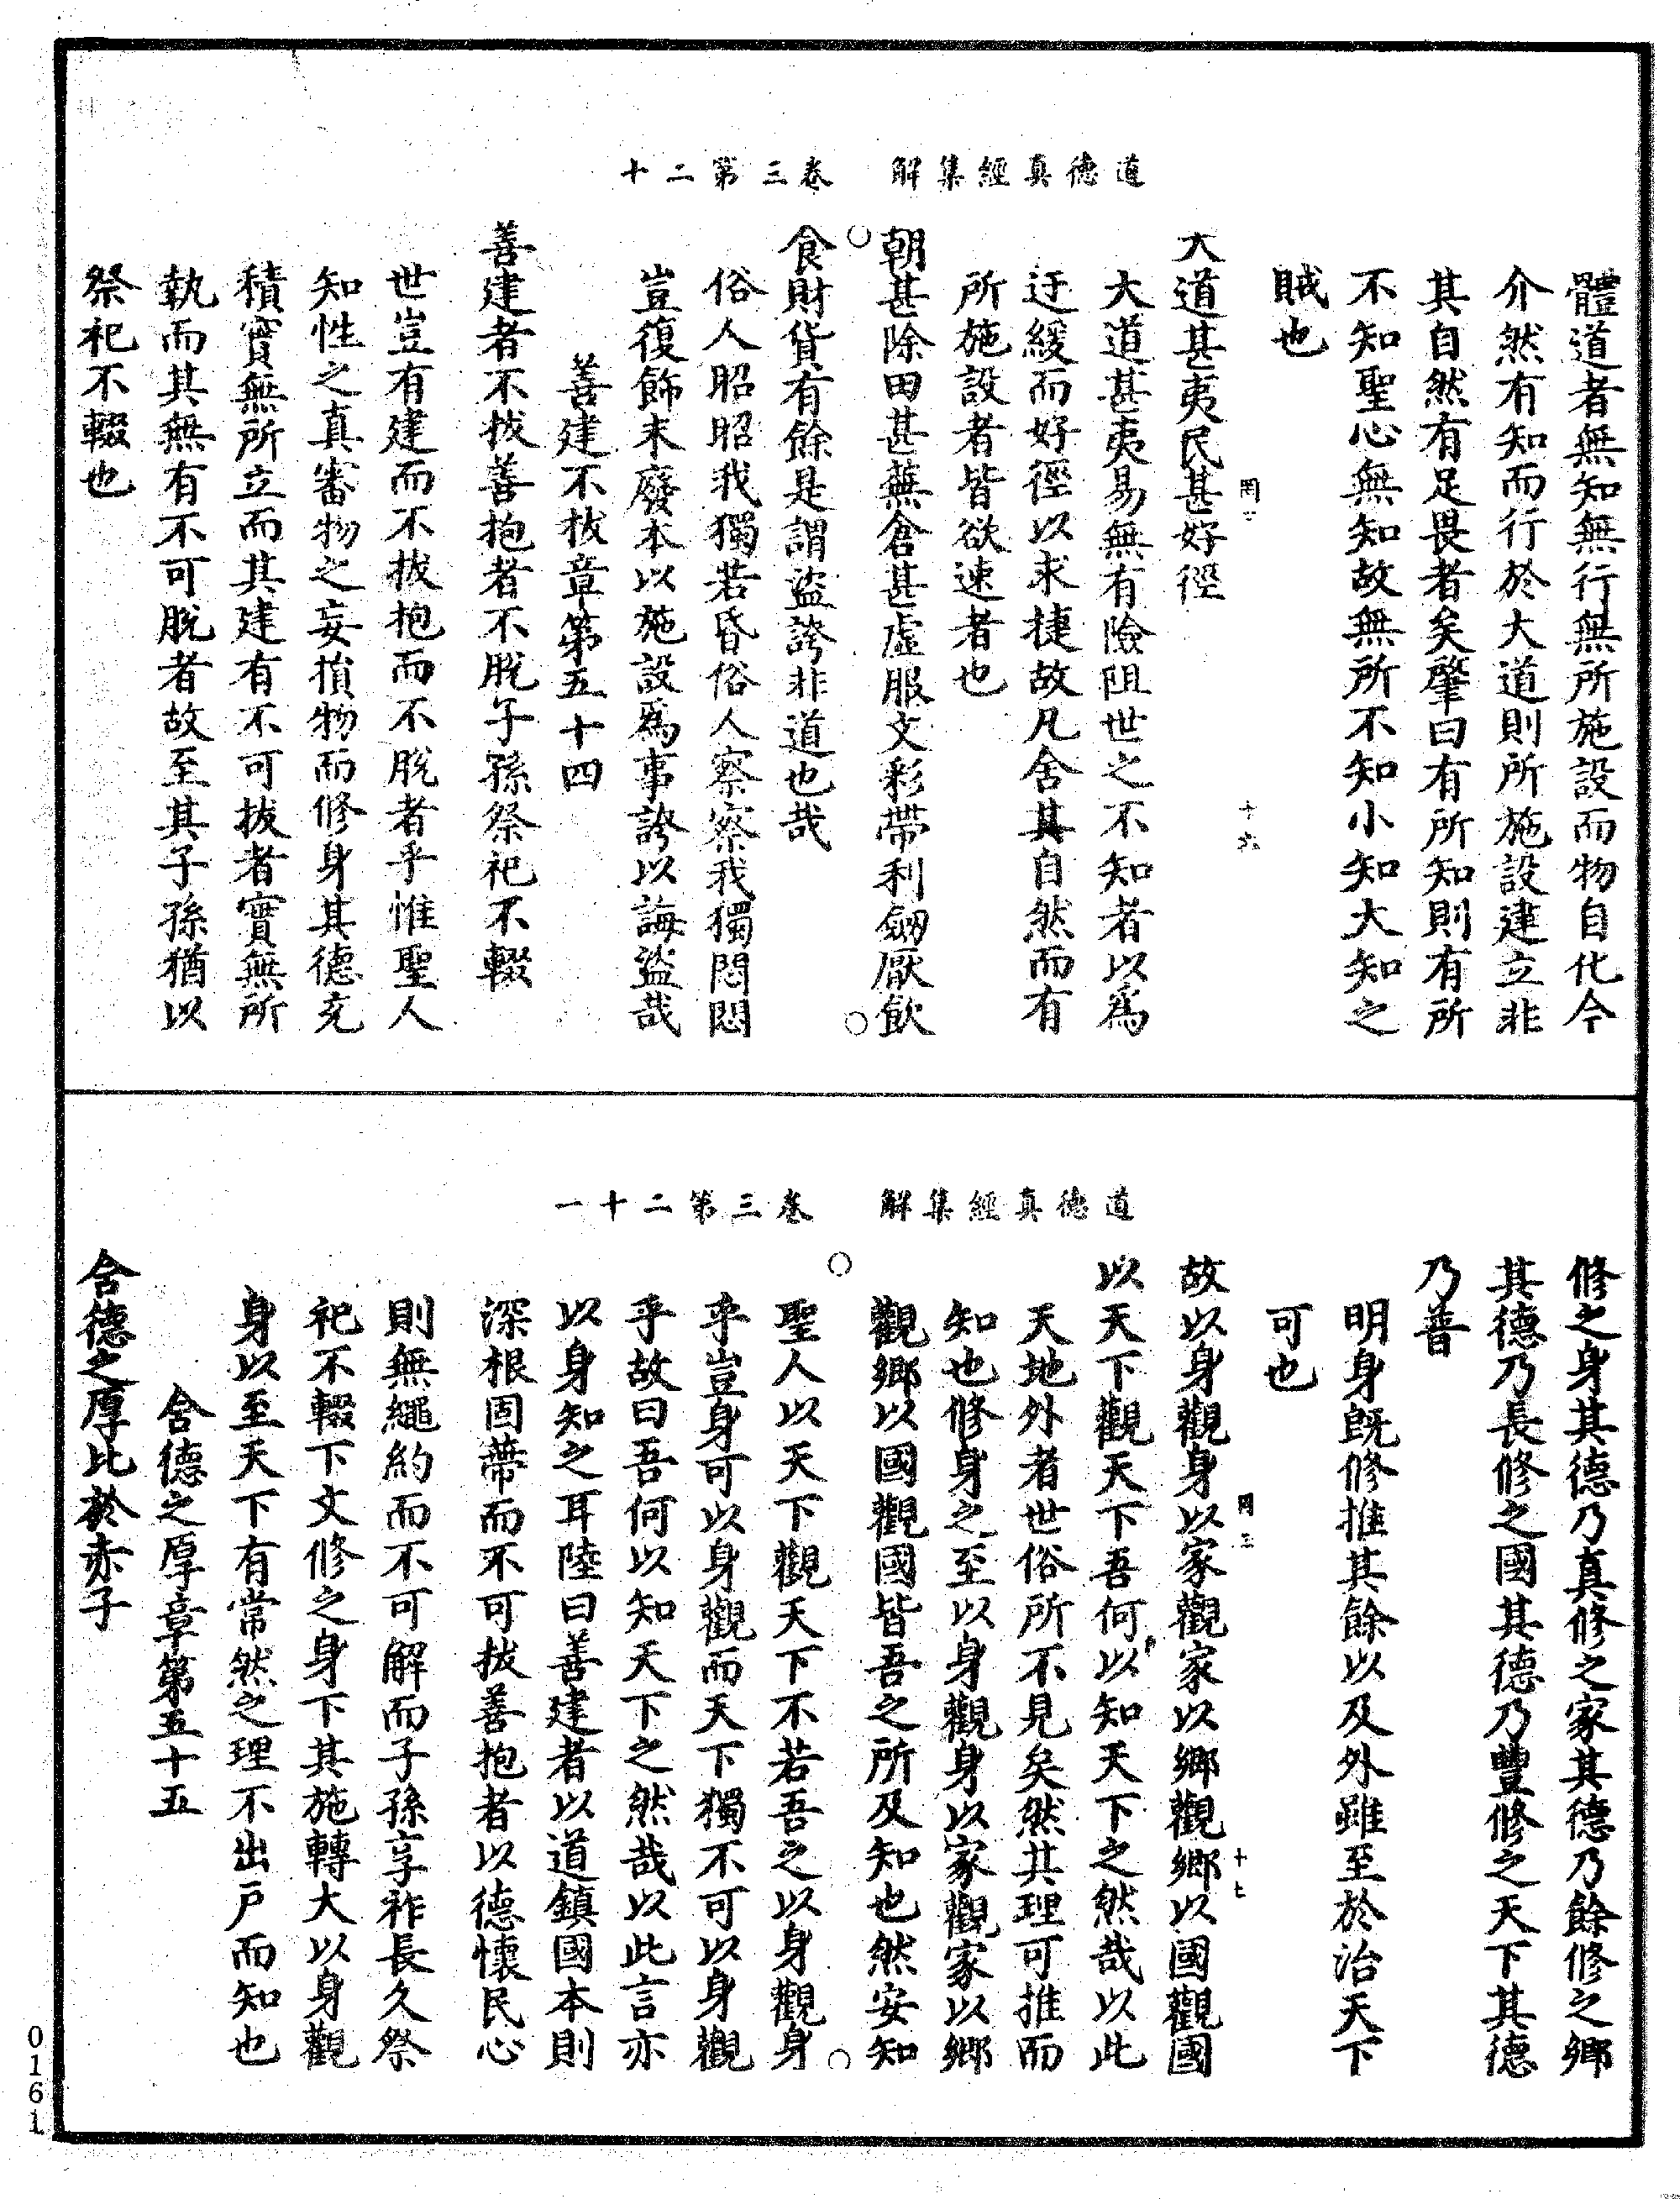 道德真經集解　卷三第二十
體道者無知無行無所施設而物自化今
介然有知而行於大道則所施設建立非
其自然有足畏者矣肇曰有所知則有所
不知聖心無知故無所不知小知大知之
賊也
大道甚夷民甚好徑
大道甚夷易無有險阻世之不知者以爲
迂緩而好徑以求捷故凡舍其自然而有
所施設者皆欲速者也
朝甚除田甚蕪倉甚虛服文彩帶利劒厭飲
食財貨有餘是謂盜誇非道也哉
俗人昭昭我獨若昏俗人察察我獨悶悶
豈復飾末廢本以施設爲事誇以誨盜哉
善建不拔章第五十四
善建者不拔善抱者不脫子孫祭祀不輟
世豈有建而不拔抱而不脫者乎惟聖人
知性之真審物之妄損物而修身其德充
積實無所立而其建有不可拔者實無所
執而其無有不可脫者故至其子孫猶以
祭祀不輟也
十六
道德真經集解　卷三第二十一
修之身其德乃真修之家其德乃餘修之鄉
其德乃長修之國其德乃豐修之天下其德
乃普
明身旣修推其餘以及外雖至於治天下
可也
故以身觀身以家觀家以鄉觀鄉以國觀國
以天下觀天下吾何以知天下之然哉以此
天地外者世俗所不見矣然其理可推而
知也修身之至以身觀身以家觀家以鄉
觀鄉以國觀國皆吾之所及知也然安知
聖人以天下觀天下不若吾之以身觀身
乎豈身可以身觀而天下獨不可以身觀
乎故曰吾何以知天下之然哉以此言亦
以身知之耳陸曰善建者以道鎮國本則
深根固蔕而不可拔善抱者以德懷民心
則無繩約而不可解而子孫享祚長久祭
祀不輟下文修之身下其施轉大以身觀
身以至天下有常然之理不出戶而知也
含德之厚章第五十五
含德之厚比於赤子
十七
0161